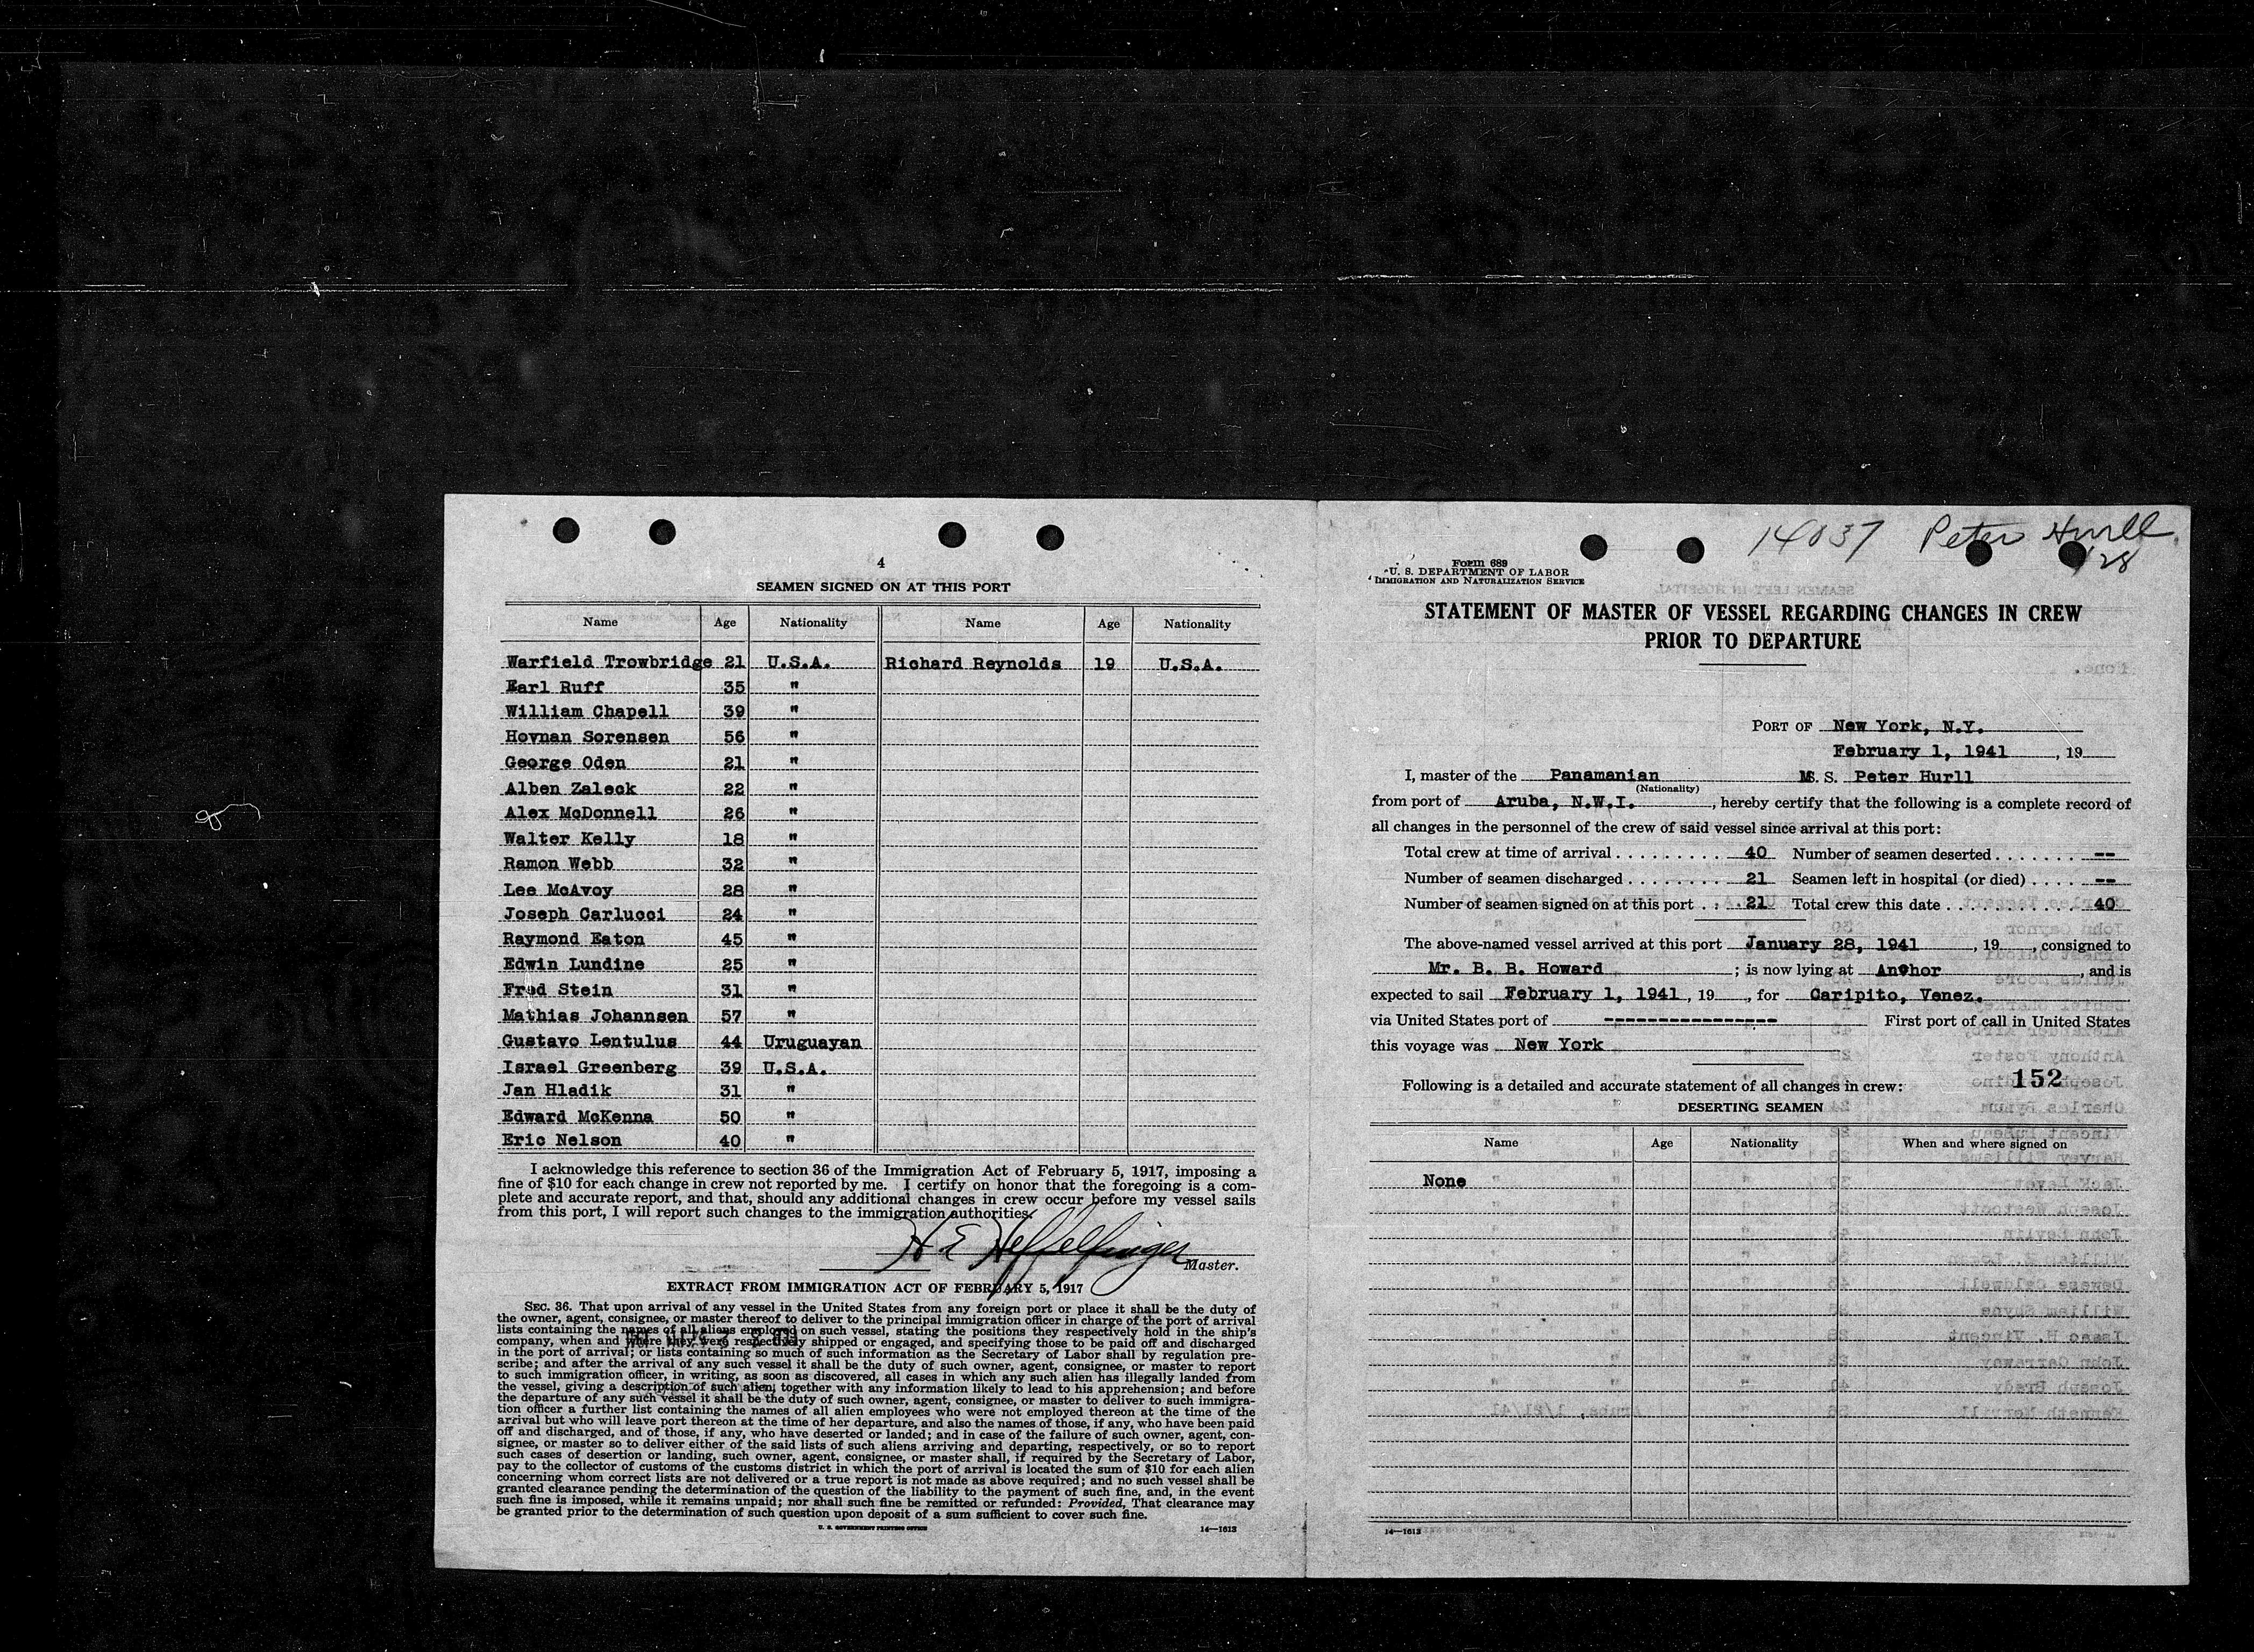 4
SEAMEN SIGNED ON AT THIS PORT
Name Age Nationality Name Age Nationality
Warfield Trowbridge 21 U.S.A. Richard Reynolds 19 U.S.A.
Earl Ruff 35 "
William Chapell 39 "
Hovnan Sorensen 56 "
George Oden 21 "
Alben Zaleck 22 "
Alex McDonnell 26 "
Walter Kelly 18 "
Ramon Webb 32 "
Lee McAvoy 28 "
Joseph Carlucci 24 "
Raymond Eaton 45 "
Edwin Lundine 25 "
Fred Stein 31 "
Mathias Johannsen 57 "
Gustavo Lentulus 44 Uruguayan
Israel Greenberg 39 U.S.A.
Jan Hladik 31 "
Edward McKenna 50 "
Eric Nelson 40 "
I acknowledge this reference to section 36 of the Immigration Act of February 5, 1917, imposing a
fine of $10 for each change in crew not reported by me. I certify on honor that the foregoing is a com-
plete and accurate report, and that, should any additional changes in crew occur before my vessel sails
from this port, I will report such changes to the immigration authorities.
H E Heffelfinger
Master.
EXTRACT FROM IMMIGRATION ACT OF FEBRUARY 5, 1917
SEC. 36. That upon arrival of any vessel in the United States from any foreign port or place it shall be the duty of
the owner, agent, consignee, or master thereof to deliver to the principal immigration officer in charge of the port of arrival
lists containing the names of all aliens employed on such vessel, stating the positions they respectively hold in the ship's
company, when and where they were respectively shipped or engaged, and specifying those to be paid off and discharged
in the port of arrival; or lists containing so much of such information as the Secretary of Labor shall by regulation pre-
scribe; and after the arrival of any such vessel it shall be the duty of such owner, agent, consignee, or master to report
to such immigration officer, in writing, as soon as discovered, all cases in which any such alien has illegally landed from
the vessel, giving a description of such alien, together with any information likely to lead to his apprehension; and before
the departure of any such vessel it shall be the duty of such owner, agent, consignee, or master to deliver to such immigra-
tion officer a further list containing the names of all alien employees who were not employed thereon at the time of the
arrival but who will leave port thereon at the time of her departure, and also the names of those, if any, who have been paid
off and discharged, and of those, if any, who have deserted or landed; and in case of the failure of such owner, agent, con-
signee, or master so to deliver either of the said lists of such aliens arriving and departing, respectively, or so to report
such cases of desertion or landing, such owner, agent, consignee, or master shall, if required by the Secretary of Labor,
pay to the collector of customs of the customs district in which the port of arrival is located the sum of $10 for each alien
concerning whom correct lists are not delivered or a true report is not made as above required; and no such vessel shall be
granted clearance pending the determination of the question of the liability to the payment of such fine, and, in the event
such fine is imposed, while it remains unpaid; nor shall such fine be remitted or refunded: Provided, That clearance may
be granted prior to the determination of such question upon deposit of a sum sufficient to cover such fine.
U. S. GOVERNMENT PRINTING OFFICE 14—1613
14037 Peter Hurll
1/28
Form 689
U. S. DEPARTMENT OF LABOR
IMMIGRATION AND NATURALIZATION SERVICE
STATEMENT OF MASTER OF VESSEL REGARDING CHANGES IN CREW
PRIOR TO DEPARTURE
PORT OF New York, N.Y.
February 1, 1941, 19
I, master of the Panamanian MS. S. Peter Hurll
(Nationality)
from port of Aruba, N.W.I., hereby certify that the following is a complete record of
all changes in the personnel of the crew of said vessel since arrival at this port:
Total crew at time of arrival . . . . . . . . . 40 Number of seamen deserted . . . . . . . --
Number of seamen discharged . . . . . . . . 21 Seamen left in hospital (or died) . . . . --
Number of seamen signed on at this port . . . . 21 Total crew this date . . . . . . . . . . . 40
The above-named vessel arrived at this port January 28, 1941, 19, consigned to
Mr. B. B. Howard; is now lying at Anchor, and is
expected to sail February 1, 1941, 19, for Caripito, Venez.
via United States port of ---------------- First port of call in United States
this voyage was New York
Following is a detailed and accurate statement of all changes in crew: 152
DESERTING SEAMEN
Name Age Nationality When and where signed on
None
14—1613